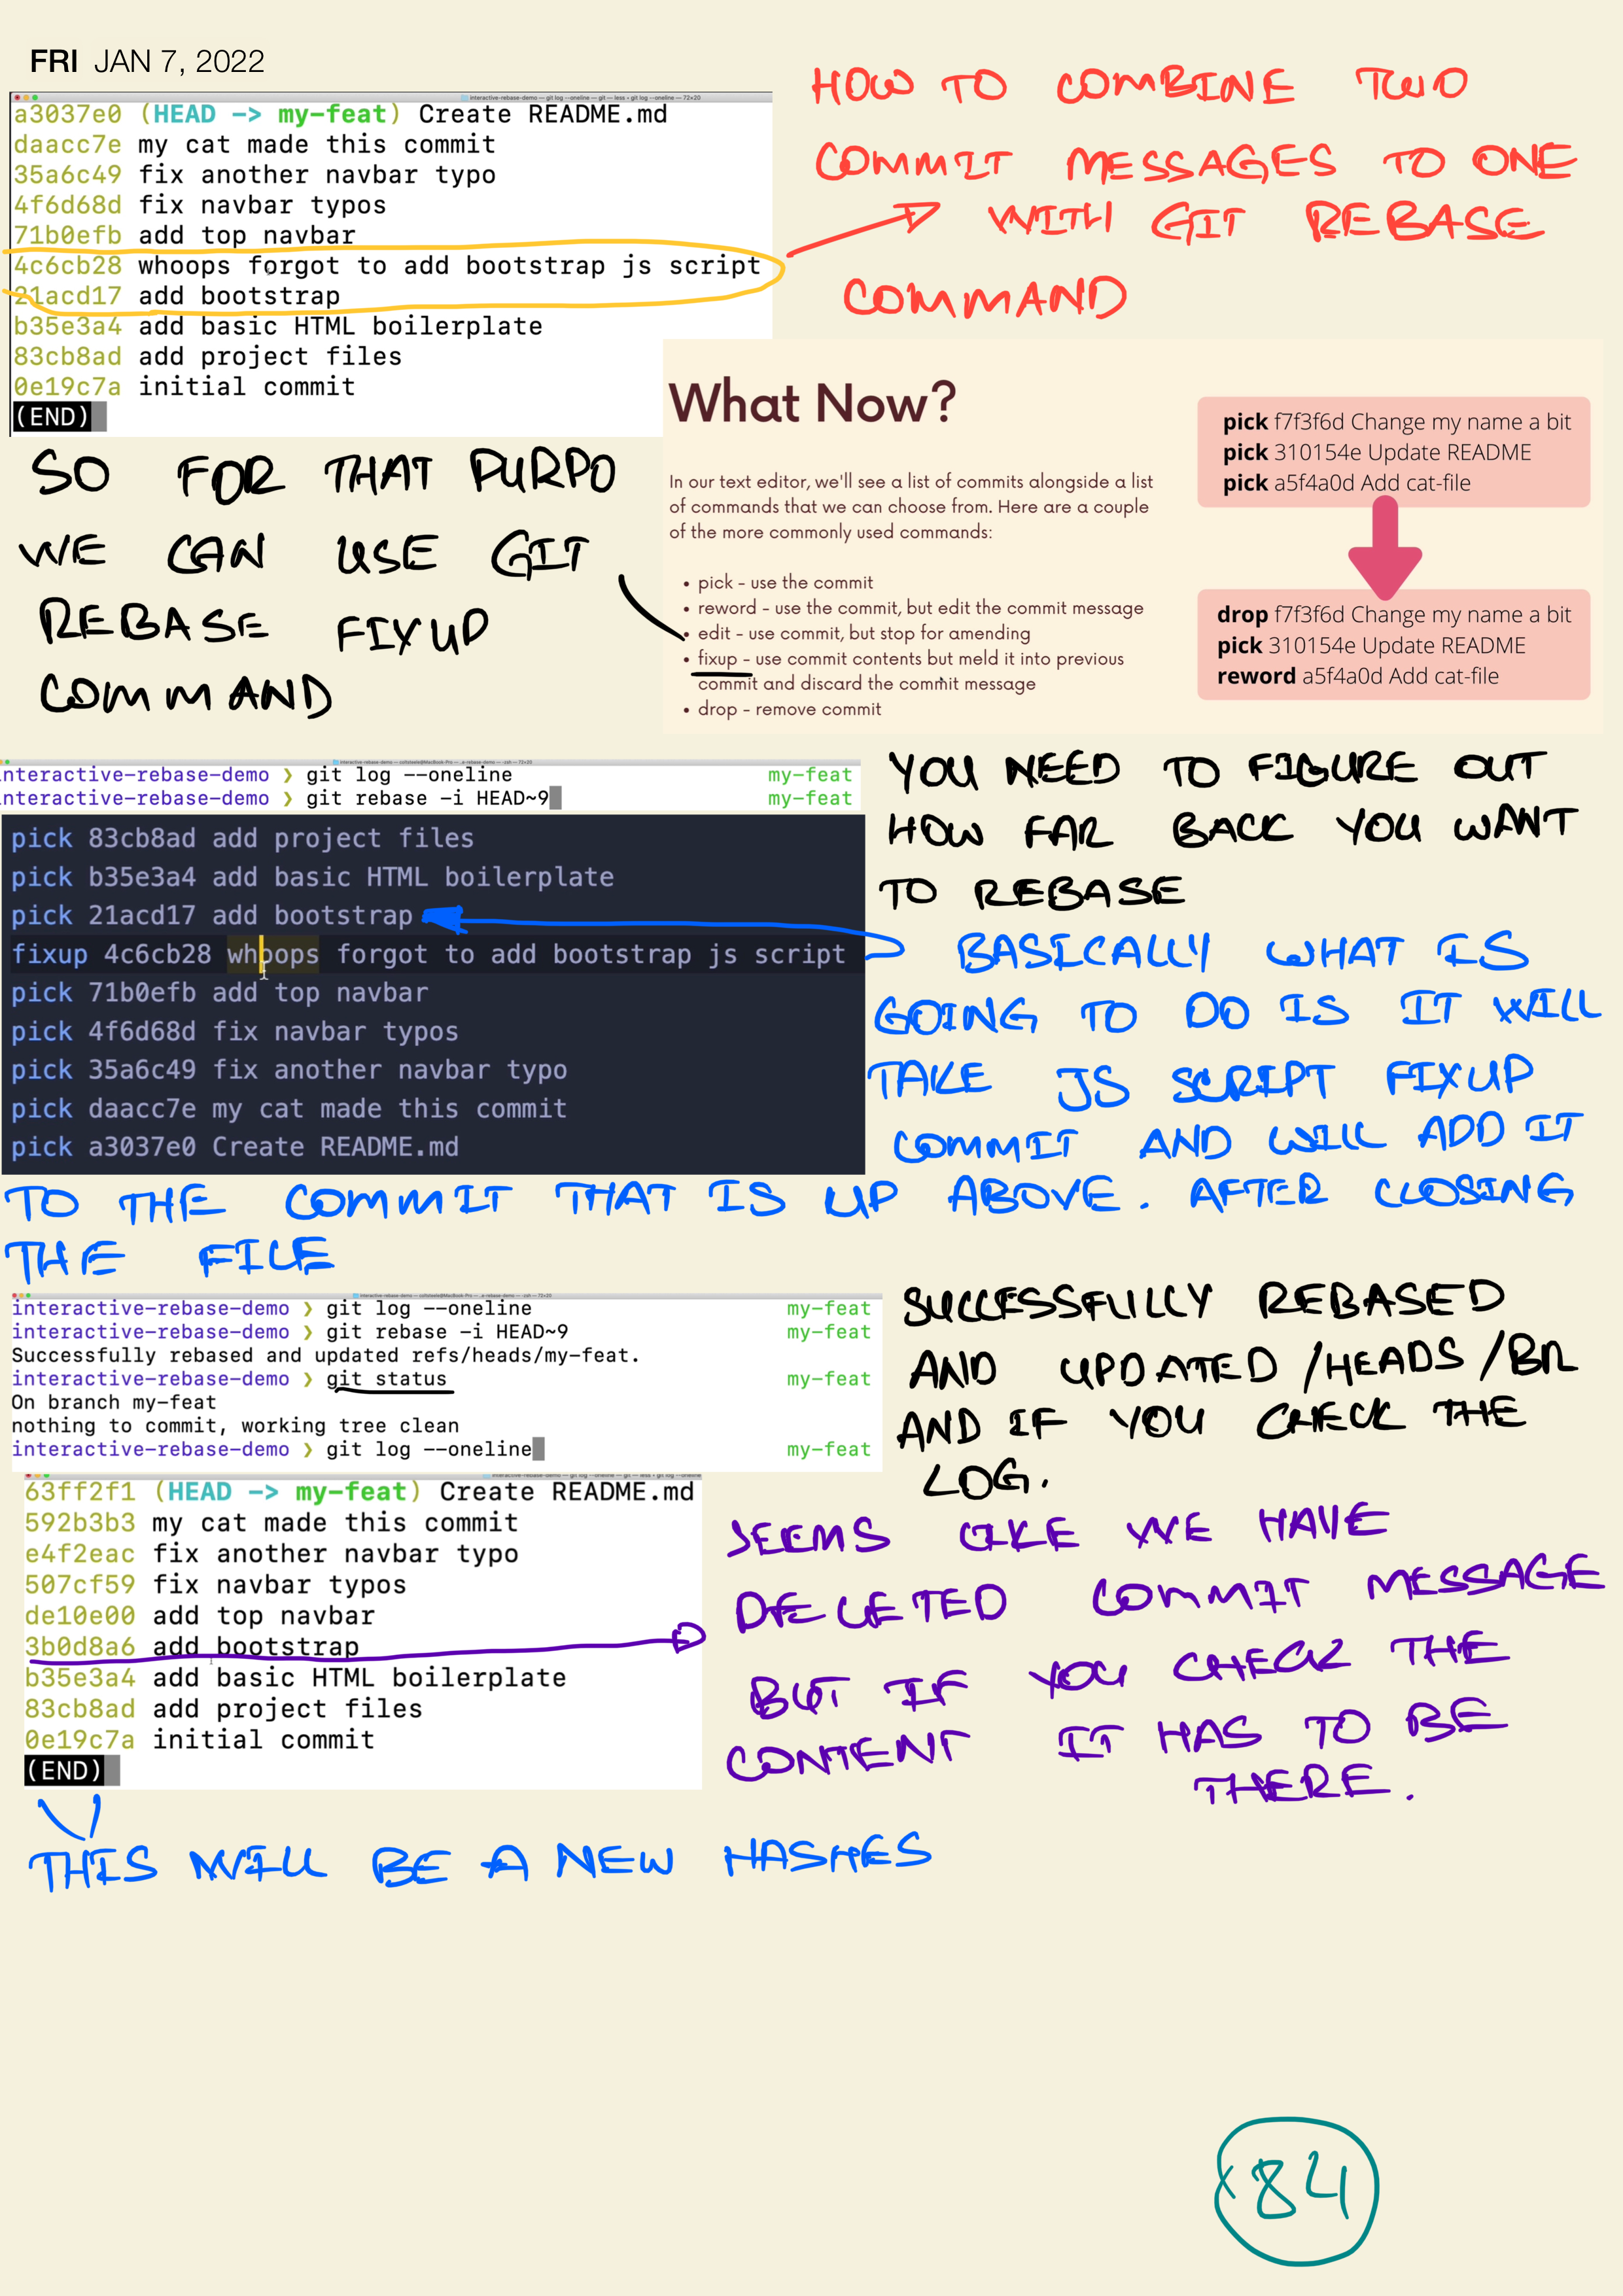 FRI JAN 7, 2022
interactive-rebase-demo — git log --oneline — git — less ‹ git log --oneline — 72×20
a3037e0 (HEAD -> my-feat) Create README.md
daacc7e my cat made this commit
35a6c49 fix another navbar typo
4f6d68d fix navbar typos
71b0efb add top navbar
4c6cb28 whoops forgot to add bootstrap js script
21acd17 add bootstrap
b35e3a4 add basic HTML boilerplate
83cb8ad add project files
0e19c7a initial commit
(END)
HOW TO COMBINE TWO
COMMIT MESSAGES TO ONE
WITH GIT REBASE
COMMAND
SO FOR THAT PURPO
WE CAN USE GIT
REBASE FIXUP
COMMAND
What Now?
In our text editor, we'll see a list of commits alongside a list
of commands that we can choose from. Here are a couple
of the more commonly used commands:
• pick - use the commit
• reword - use the commit, but edit the commit message
• edit - use commit, but stop for amending
• fixup - use commit contents but meld it into previous
commit and discard the commit message
• drop - remove commit
pick f7f3f6d Change my name a bit
pick 310154e Update README
pick a5f4a0d Add cat-file
drop f7f3f6d Change my name a bit
pick 310154e Update README
reword a5f4a0d Add cat-file
nteractive-rebase-demo ❯ git log --oneline my-feat
nteractive-rebase-demo ❯ git rebase -i HEAD~9 my-feat
pick 83cb8ad add project files
pick b35e3a4 add basic HTML boilerplate
pick 21acd17 add bootstrap
fixup 4c6cb28 whoops forgot to add bootstrap js script
pick 71b0efb add top navbar
pick 4f6d68d fix navbar typos
pick 35a6c49 fix another navbar typo
pick daacc7e my cat made this commit
pick a3037e0 Create README.md
YOU NEED TO FIGURE OUT
HOW FAR BACK YOU WANT
TO REBASE
BASICALLY WHAT IS
GOING TO DO IS IT WILL
TAKE JS SCRIPT FIXUP
COMMIT AND WILL ADD IT
TO THE COMMIT THAT IS UP ABOVE. AFTER CLOSING
THE FILE
interactive-rebase-demo ❯ git log --oneline my-feat
interactive-rebase-demo ❯ git rebase -i HEAD~9 my-feat
Successfully rebased and updated refs/heads/my-feat.
interactive-rebase-demo ❯ git status my-feat
On branch my-feat
nothing to commit, working tree clean
interactive-rebase-demo ❯ git log --oneline my-feat
SUCCESSFULLY REBASED
AND UPDATED /HEADS/BR
AND IF YOU CHECK THE
LOG.
63ff2f1 (HEAD -> my-feat) Create README.md
592b3b3 my cat made this commit
e4f2eac fix another navbar typo
507cf59 fix navbar typos
de10e00 add top navbar
3b0d8a6 add bootstrap
b35e3a4 add basic HTML boilerplate
83cb8ad add project files
0e19c7a initial commit
(END)
SEEMS LIKE WE HAVE
DELETED COMMIT MESSAGE
BUT IF YOU CHECK THE
CONTENT IT HAS TO BE
THERE.
THIS WILL BE A NEW HASHES
84